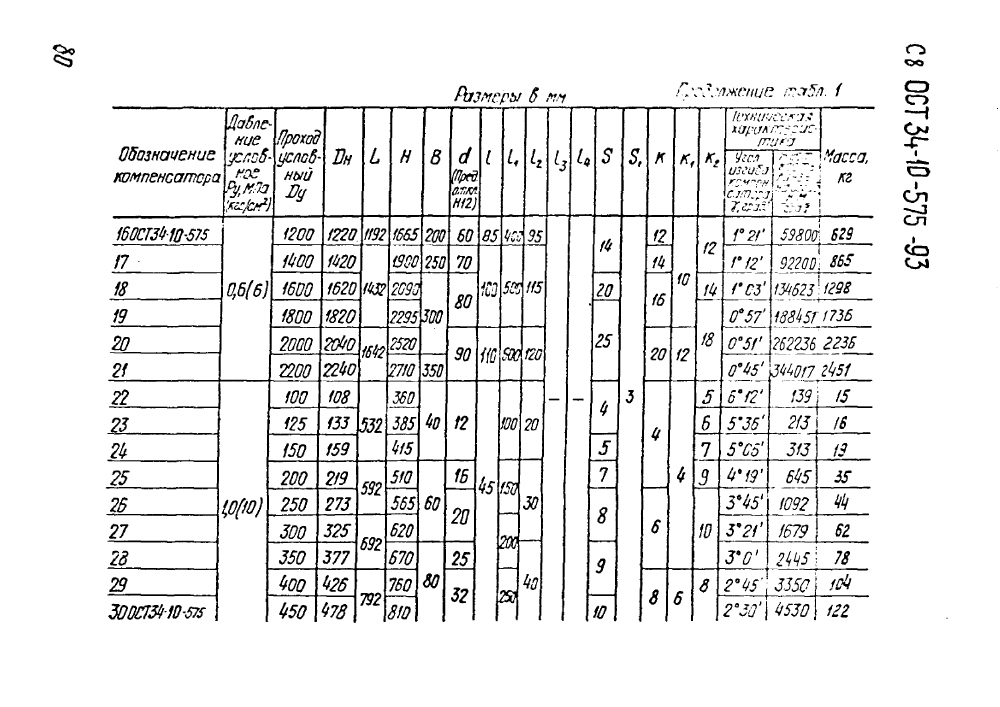 80
С8 ОСТ 34-10-575-93
Размеры в мм
Продолжение табл. 1
Обозначение компенсатора
Давле-
ние
услов-
ное
Ру, МПа
(кгс/см²)
Проход
услов-
ный
Dу
Dн L H B d l l₁ l₂ l₃ l₄ S S₁ K K₁ K₂
(Пред.
откл.
H12)
Техническая
характерис-
тика
Угол
изгиба
компен-
сатора
γ, град
Масса,
кг
16 ОСТ34-10-575 0,6(6) 1200 1220 1192 1665 200 60 85 400 95 — — 14 3 12 10 12 1°21' 59800 629
17 1400 1420 1432 1900 250 70 100 500 115 14 1°12' 92200 865
18 1600 1620 2090 300 80 20 16 14 1°03' 134623 1298
19 1800 1820 2295 25 18 0°57' 188451 1736
20 2000 2040 1642 2520 90 110 600 120 20 12 0°51' 262236 2236
21 2200 2240 2710 350 0°45' 344017 2451
22 1,0(10) 100 108 532 360 40 12 45 100 20 4 4 4 5 6°12' 139 15
23 125 133 385 6 5°36' 213 16
24 150 159 415 5 7 5°06' 313 19
25 200 219 592 510 60 16 150 30 7 9 4°19' 645 35
26 250 273 565 20 8 6 10 3°45' 1092 44
27 300 325 692 620 200 3°21' 1679 62
28 350 377 670 80 25 40 9 3°0' 2445 78
29 400 426 792 760 32 250 8 6 8 2°45' 3350 104
30 ОСТ34-10-575 450 478 810 10 2°30' 4530 122